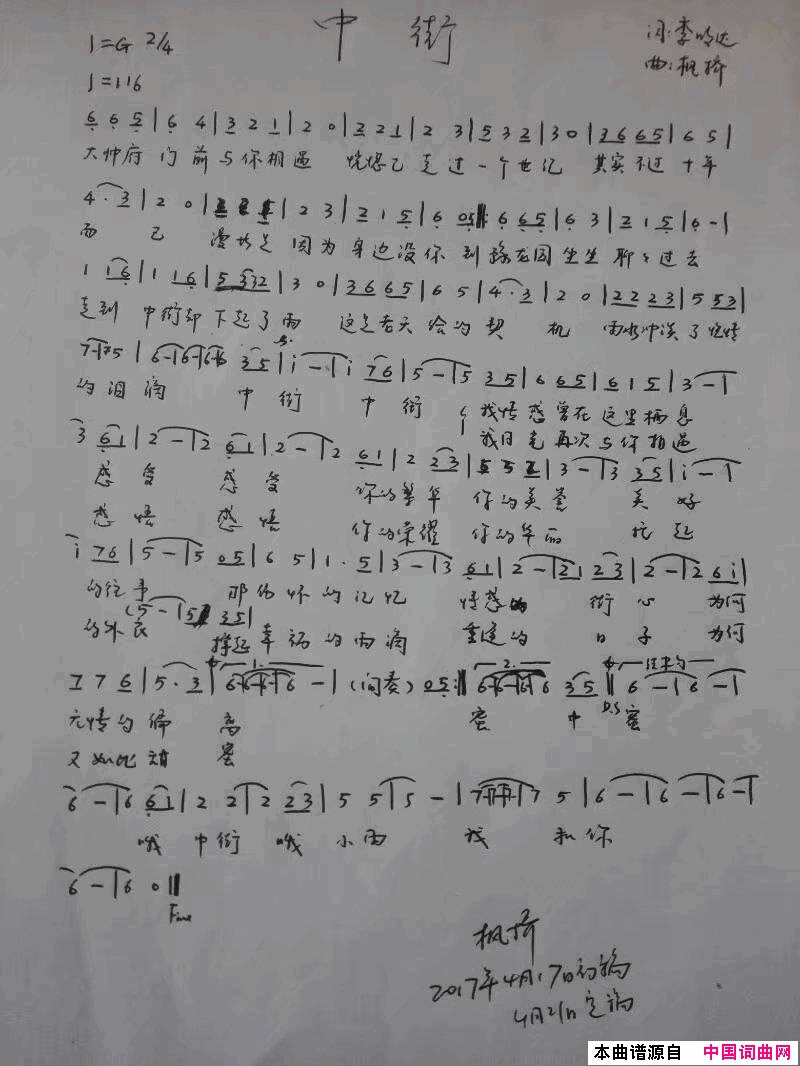 中 街
1=G 2/4
♩=116
词:李明达
曲:枫桥
6 6 5 | 6 4 | 3 2 1 | 2 0 | 2 2 1 | 2 3 | 5 3 2 | 3 0 | 3 6 6 5 | 6 5 |
大帅府 门前与你相遇 恍惚已走过一个世纪 其实不过十年
4 · 3 | 2 0 | 2 3 | 2 1 5 | 6 0 5 ‖: 6 6 5 | 6 3 | 2 1 5 | 6 - |
而已 因为身边没你 到 坐坐聊聊过去
1 1 6 | 1 1 6 | 5 3 3 2 | 3 0 | 3 6 6 5 | 6 5 | 4 · 3 | 2 0 | 2 2 2 3 | 5 5 3 |
走到 中街却下起了雨 这是老天给的契机 雨水冲淡了
的泪滴 中街 中街
3 5 | 6 6 5 | 6 1 5 | 3 - |
我情感曾在这里栖息
我目光再次与你相遇
3 6 1 | 2 - | 2 6 1 | 2 - | 2 6 1 | 2 2 3 | 3 - | 3 3 5 | i - |
感受 感受 你的繁华 你的美誉 美好
感悟 感悟 你的荣耀 你的华丽 托起
i 7 6 | 5 - | 5 0 5 | 6 5 | 1 · 5 | 3 - | 3 6 1 | 2 - | 2 2 3 | 2 - | 2 6 i |
的往事 那伤怀的记忆 情感的 街心 为何
(5 - | 5 3 5 |
的外衣 撑起幸福的雨滴 重逢的 日子 为何
7 7 6 | 5 · 3 | 6 - | (间奏) 0 5 :‖ 3 5 ‖ 6 - | 6 - |
1. 2. 结束句
D.S
无情的 蜜 中 蜜
又如此甜蜜
6 - | 6 6 1 | 2 2 | 2 2 3 | 5 5 | 5 - | 7 5 | 6 - | 6 - | 6 - |
哦 中街 哦 小雨 我 和你
6 - | 6 0 ‖
Fine
枫桥
2017年4月17日初稿
4月21日定稿
本曲谱源自 中国词曲网